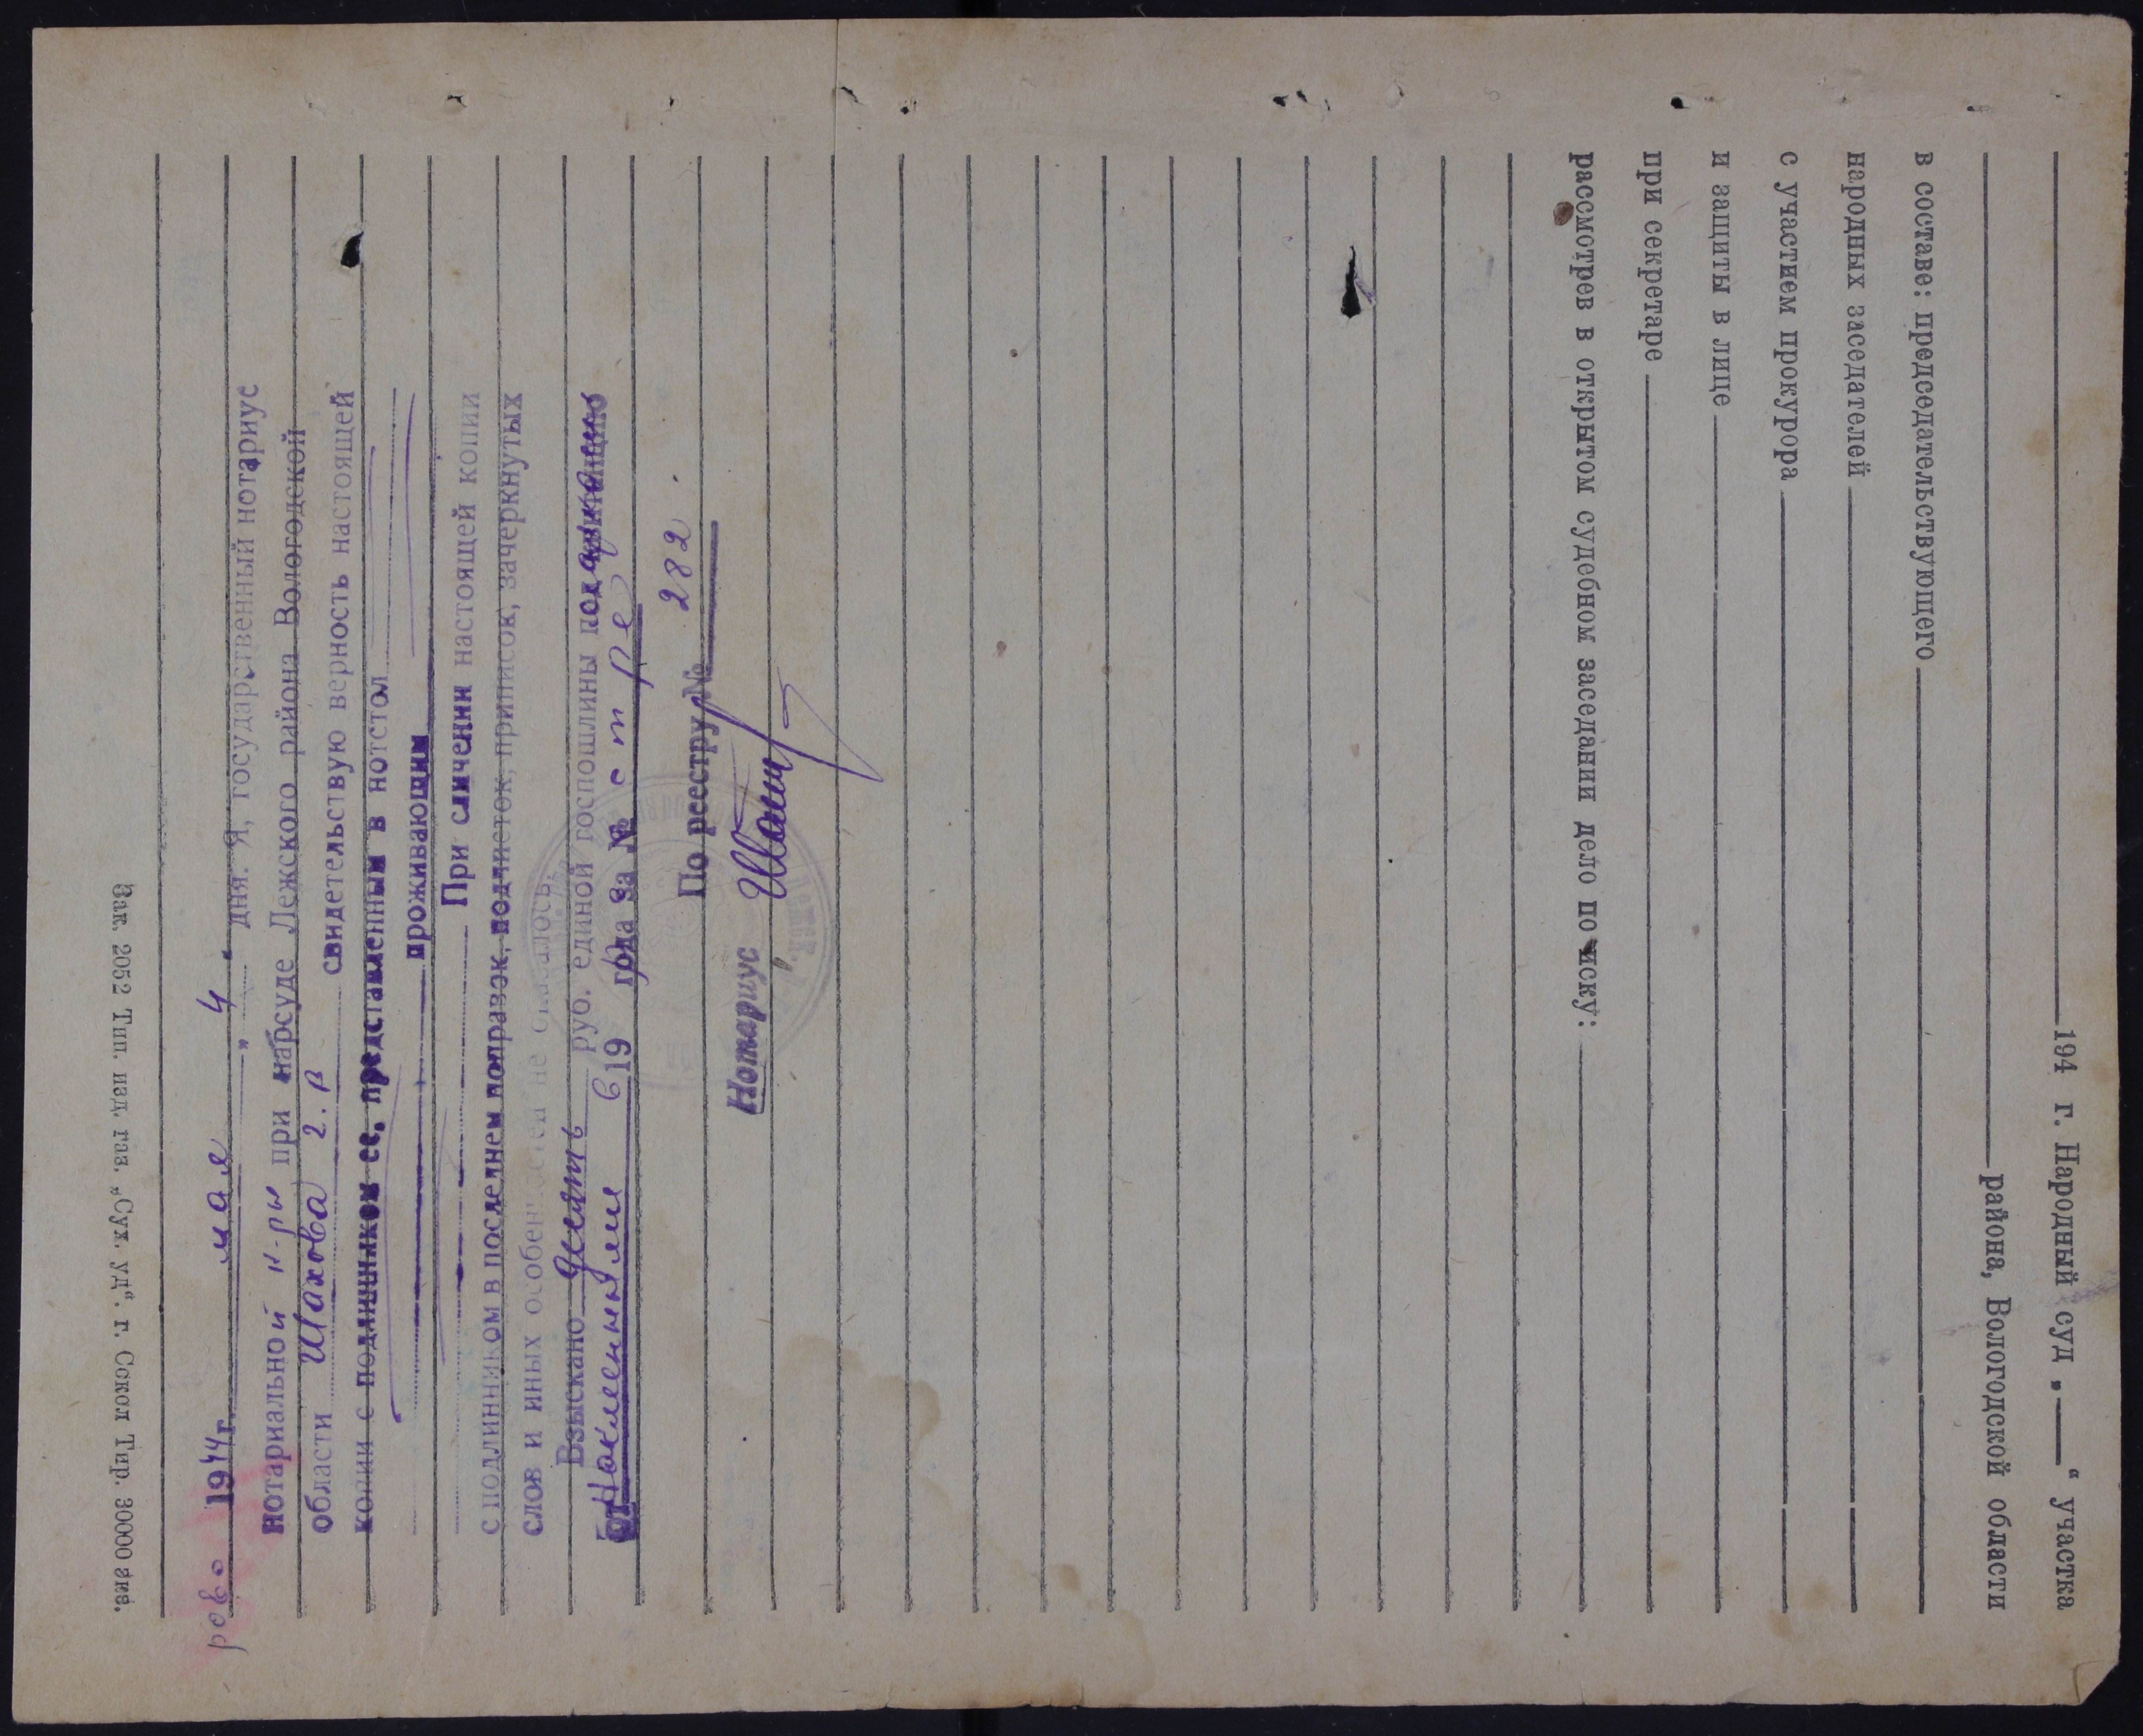 194 г. Народный суд „ “ участка
района, Вологодской области
в составе: председательствующего
народных заседателей
с участием прокурора
и защиты в лице
при секретаре
рассмотрев в открытом судебном заседании дело по иску:
Зак. 2052 Тип. изд. газ. „Сух. уд“. г. Сокол Тир. 30000 экз.
1944 г. мая „ 4 “ дня. Я, государственный нотариус
нотариальной к-ры при нарсуде Лежского района Вологодской
области Шахова свидетельствую верность настоящей
копии с подлинником ее, представленным в нотстол
проживающим
При сличении настоящей копии
с подлинником в последнем поправок, подчисток, приписок, зачеркнутых
слов и иных особенностей не оказалось.
Взыскано десять руб. единой госпошлины
Наклеенных 19 года за №
По реестру № 282
Нотариус